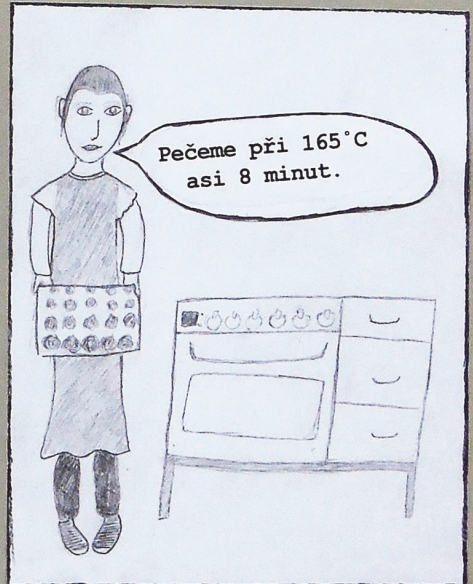 Pečeme při 165°C
asi 8 minut.